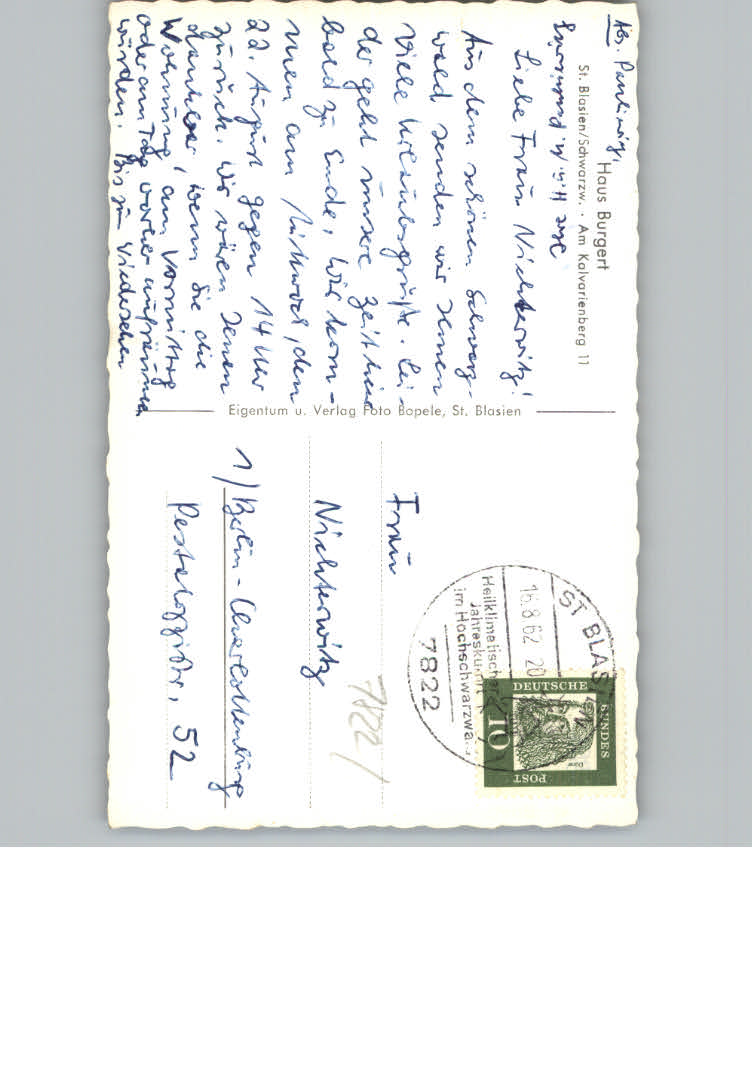 Abs. Pauli-
Haus Burgert
St. Blasien/Schwarzw. · Am Kalvarienberg 11
Liebe Frau Nichterwitz!
Aus dem schönen Schwarz-
wald senden wir Ihnen
viele Urlaubsgrüße. Lei-
der geht unsere Zeit hier
bald zu Ende, wir kom-
men am Mittwoch, den
22. August gegen 14 Uhr
zurück. Wir wären Ihnen
dankbar, wenn Sie die
Wohnung am Vormittag
oder am Tag vorher aufräumen
würden. Bis zum Wiedersehen
Ihre H. u. M.
Eigentum u. Verlag Foto Bopele, St. Blasien
Frau
Nichterwitz
1) Berlin-Charlottenburg
Pestalozzistr. 52
7822/
ST BLASIEN
16.8.62 20
Heilklimatischer
Jahreskurort
im Hochschwarzwa
7822
DEUTSCHE
BUNDES
POST
10
Dürer